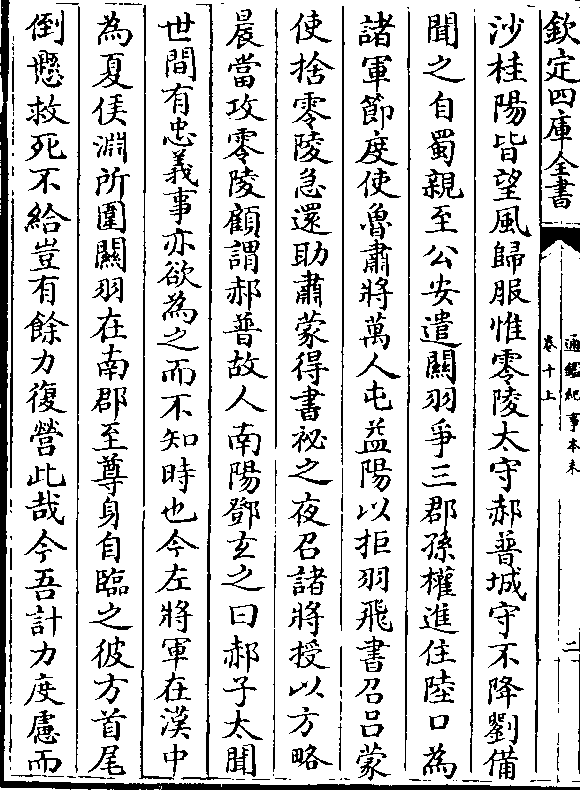 欽定四庫全書
通鑑紀事本末
卷十上
二
沙桂陽皆望風歸服惟零陵太守郝普城守不降劉備
聞之自蜀親至公安遣關羽爭三郡孫權進住陸口為
諸軍節度使魯肅將萬人屯益陽以拒羽飛書召呂蒙
使捨零陵急還助肅蒙得書祕之夜召諸將授以方略
晨當攻零陵顧謂郝普故人南陽鄧玄之曰郝子太聞
世間有忠義事亦欲為之而不知時也今左將軍在漢中
為夏侯淵所圍關羽在南郡至尊身自臨之彼方首尾
倒懸救死不給豈有餘力復營此哉今吾計力度慮而